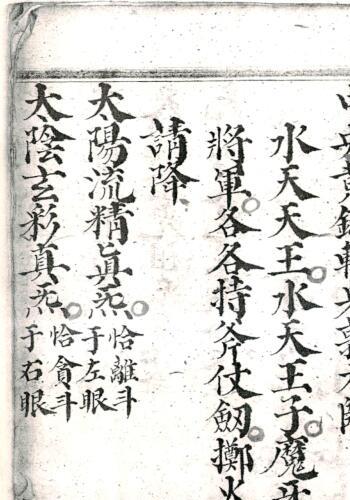 水天天王水天王子魔
將軍各各持斧仗劒擲火
請降
太陽流精真炁恰離斗于左眼
太陰玄彩真炁恰貪斗于右眼